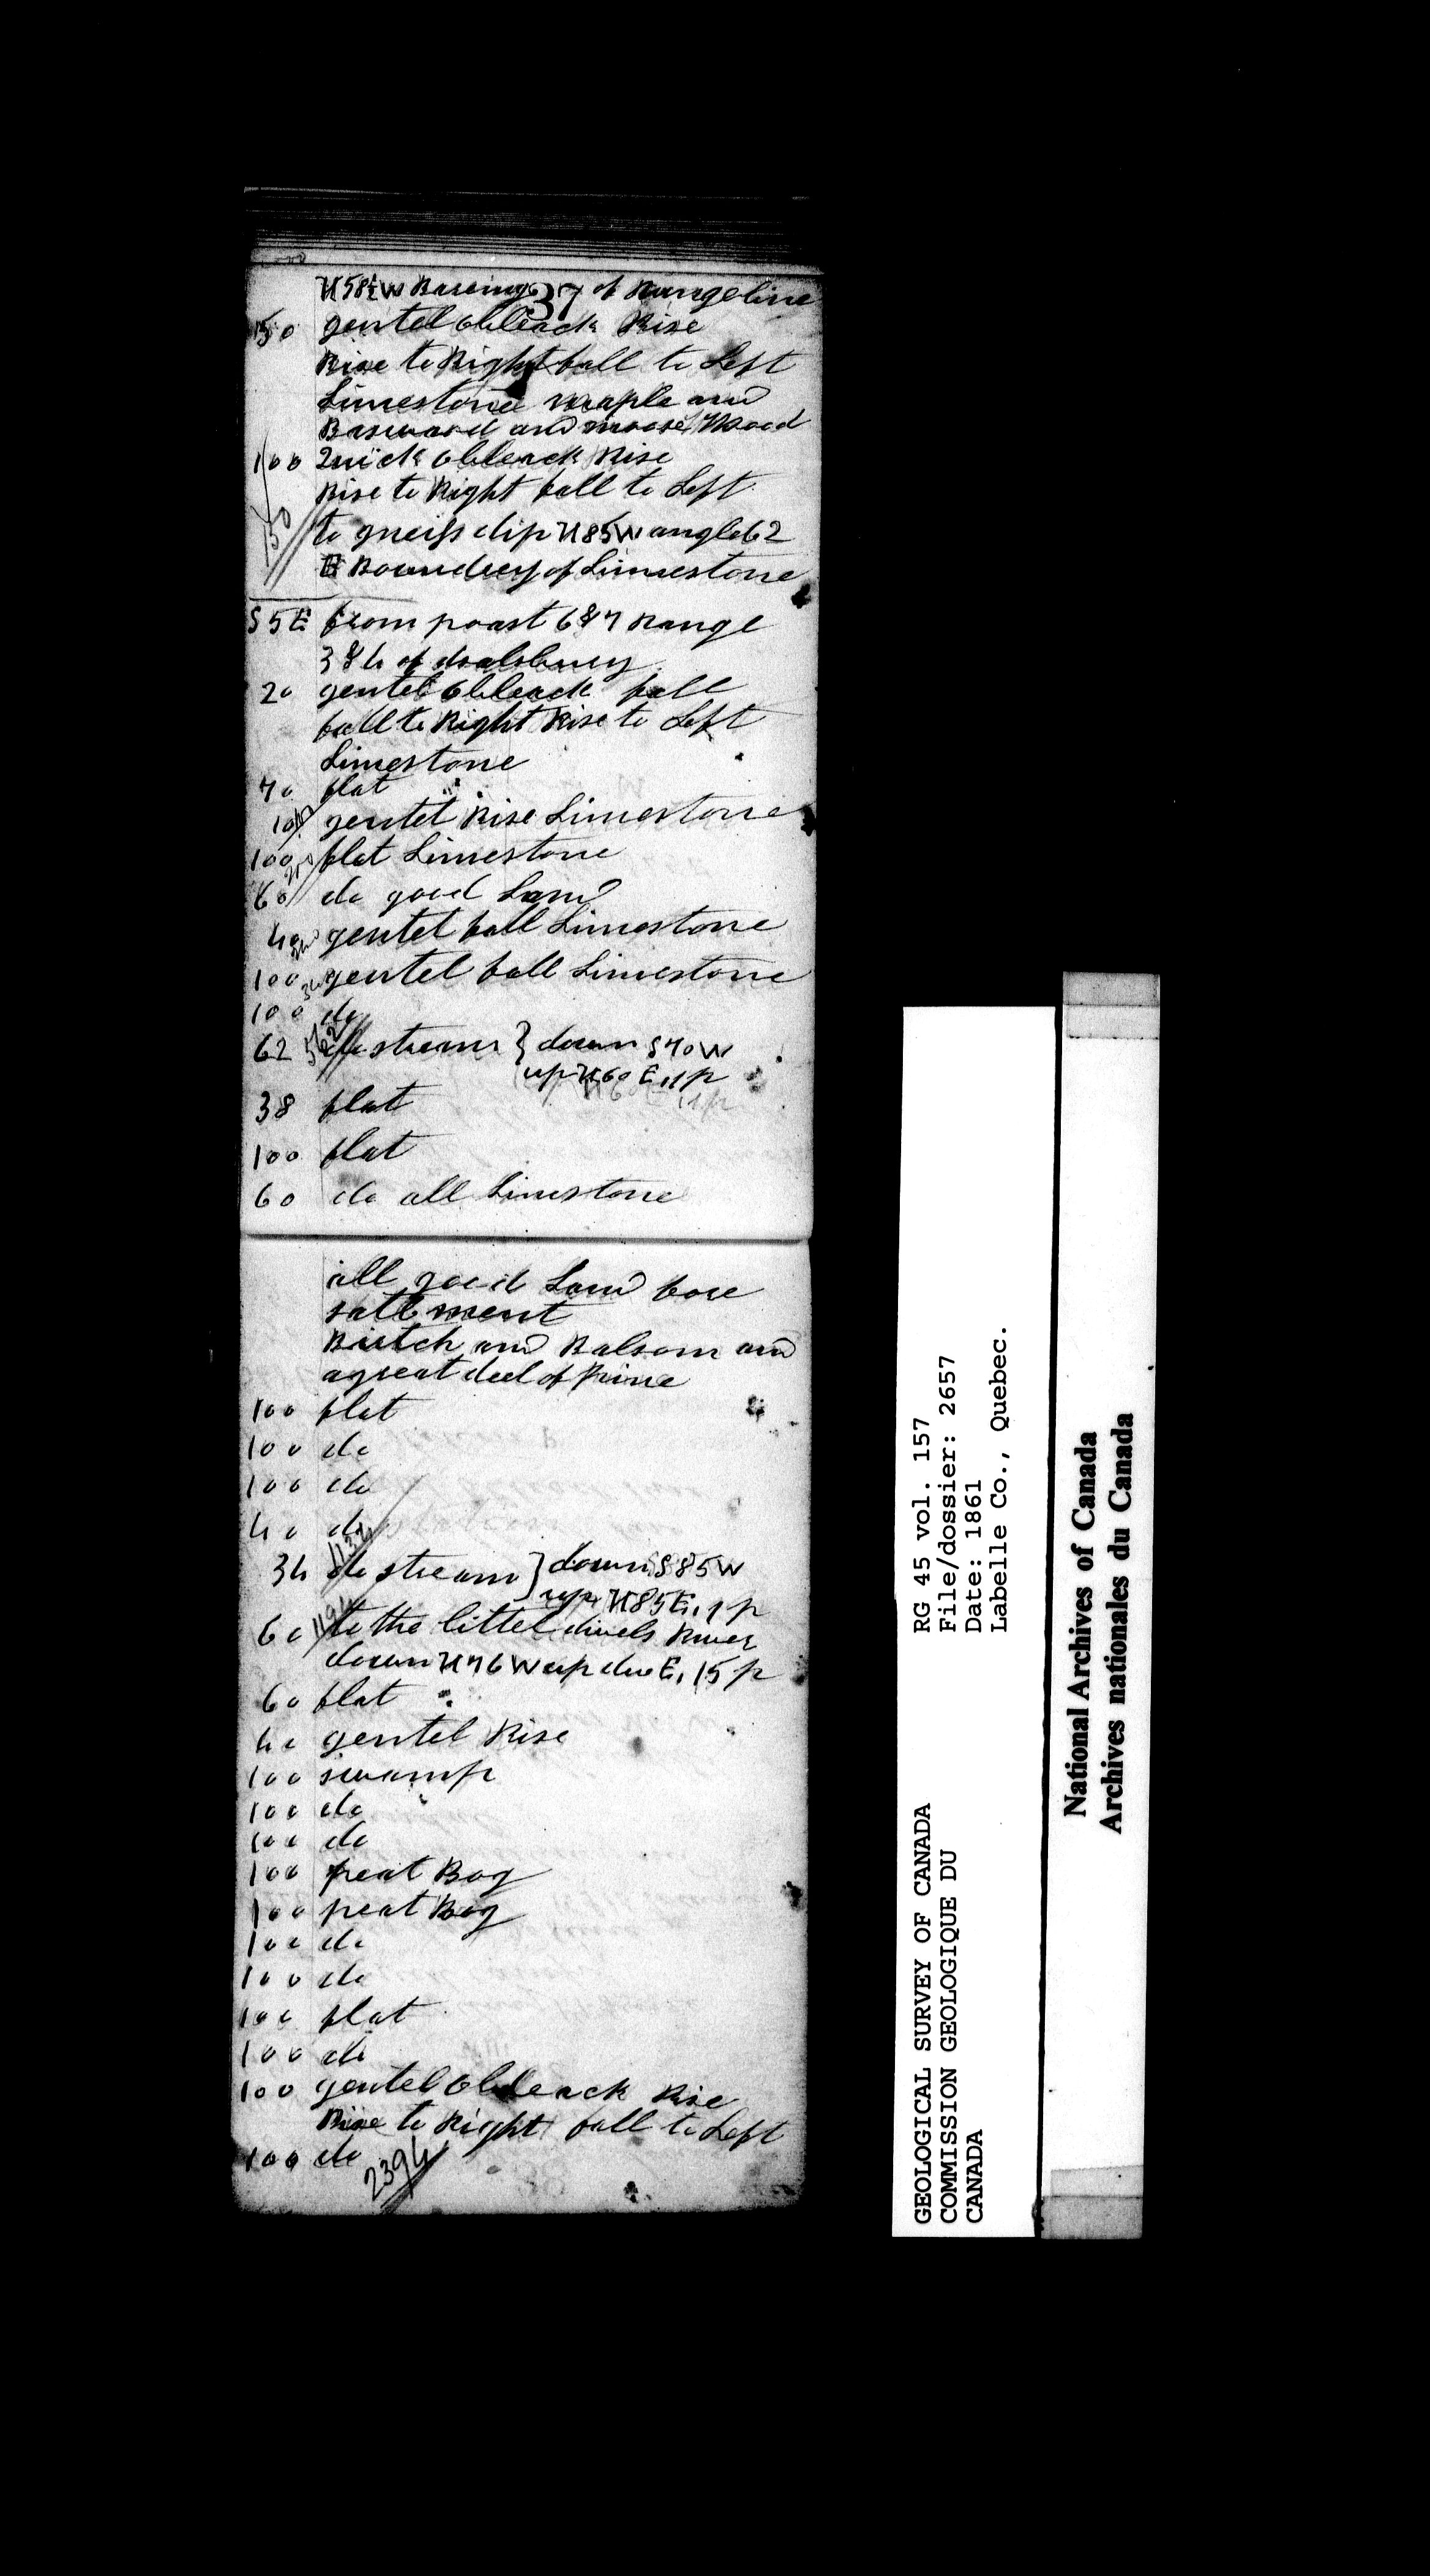 N58½W Bareing of Rangeline
37
50 gentel obleack Rise
Rise to Right fall to Left
Limestone maple and
Baswood and moose Wood
100 Quick obleack Rise
Rise to Right fall to Left
150
to gneiss dip N85W angle 62
Boundrey of Limestone
S5E from poast 6&7 Range
3&4 of dsalsbury
20 gentel obleack fall
fall to Right Rise to Left
Limestone
70 flat
10 gentel Rise Limestone
100 flat Limestone
60 do good Land
40 gentel fall Limestone
100 gentel fall Limestone
100 do
62 562 do stream } down S70W
up N60E, 1 p
38 flat
100 flat
60 do all Limestone
all good Land fore
satlment
Birtch and Balsom and
a great deel of Pine
100 flat
100 do
100 do
40 do
1134
34 do stream } down S85W
up N85E, 1 p
60 1194 to the littel divels River
down N76W up due E, 15 p
60 flat
40 gentel Rise
100 swamp
100 do
100 do
100 peat Bog
100 peat Bog
100 do
100 do
100 flat
100 do
100 gentel obleack Rise
Rise to Right fall to Left
100 do
2394
GEOLOGICAL SURVEY OF CANADA
COMMISSION GEOLOGIQUE DU
CANADA
RG 45 vol. 157
File/dossier: 2657
Date: 1861
Labelle Co., Quebec.
National Archives of Canada
Archives nationales du Canada